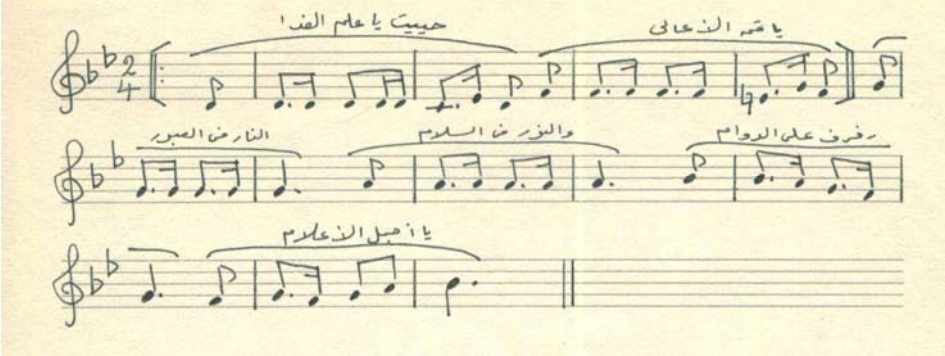 حييت يا علم الفدا يا قمه الأعالى
النار فى والنور فى السلام رفرف على الدوام
يا أجمل الأعلام